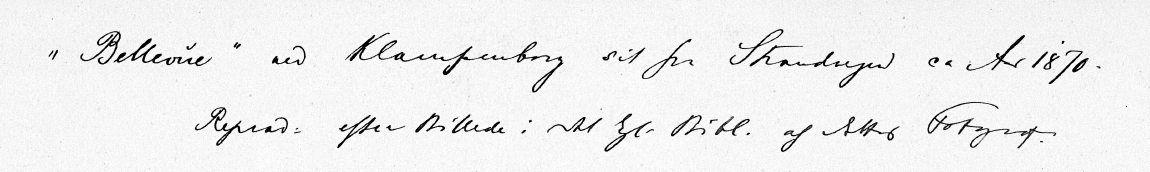 "Bellevue" ved Klampenborg set fra Strandvejen ca Aar 1870.
Reprod: efter Billede i det Kgl. Bibl. af Fotograf.